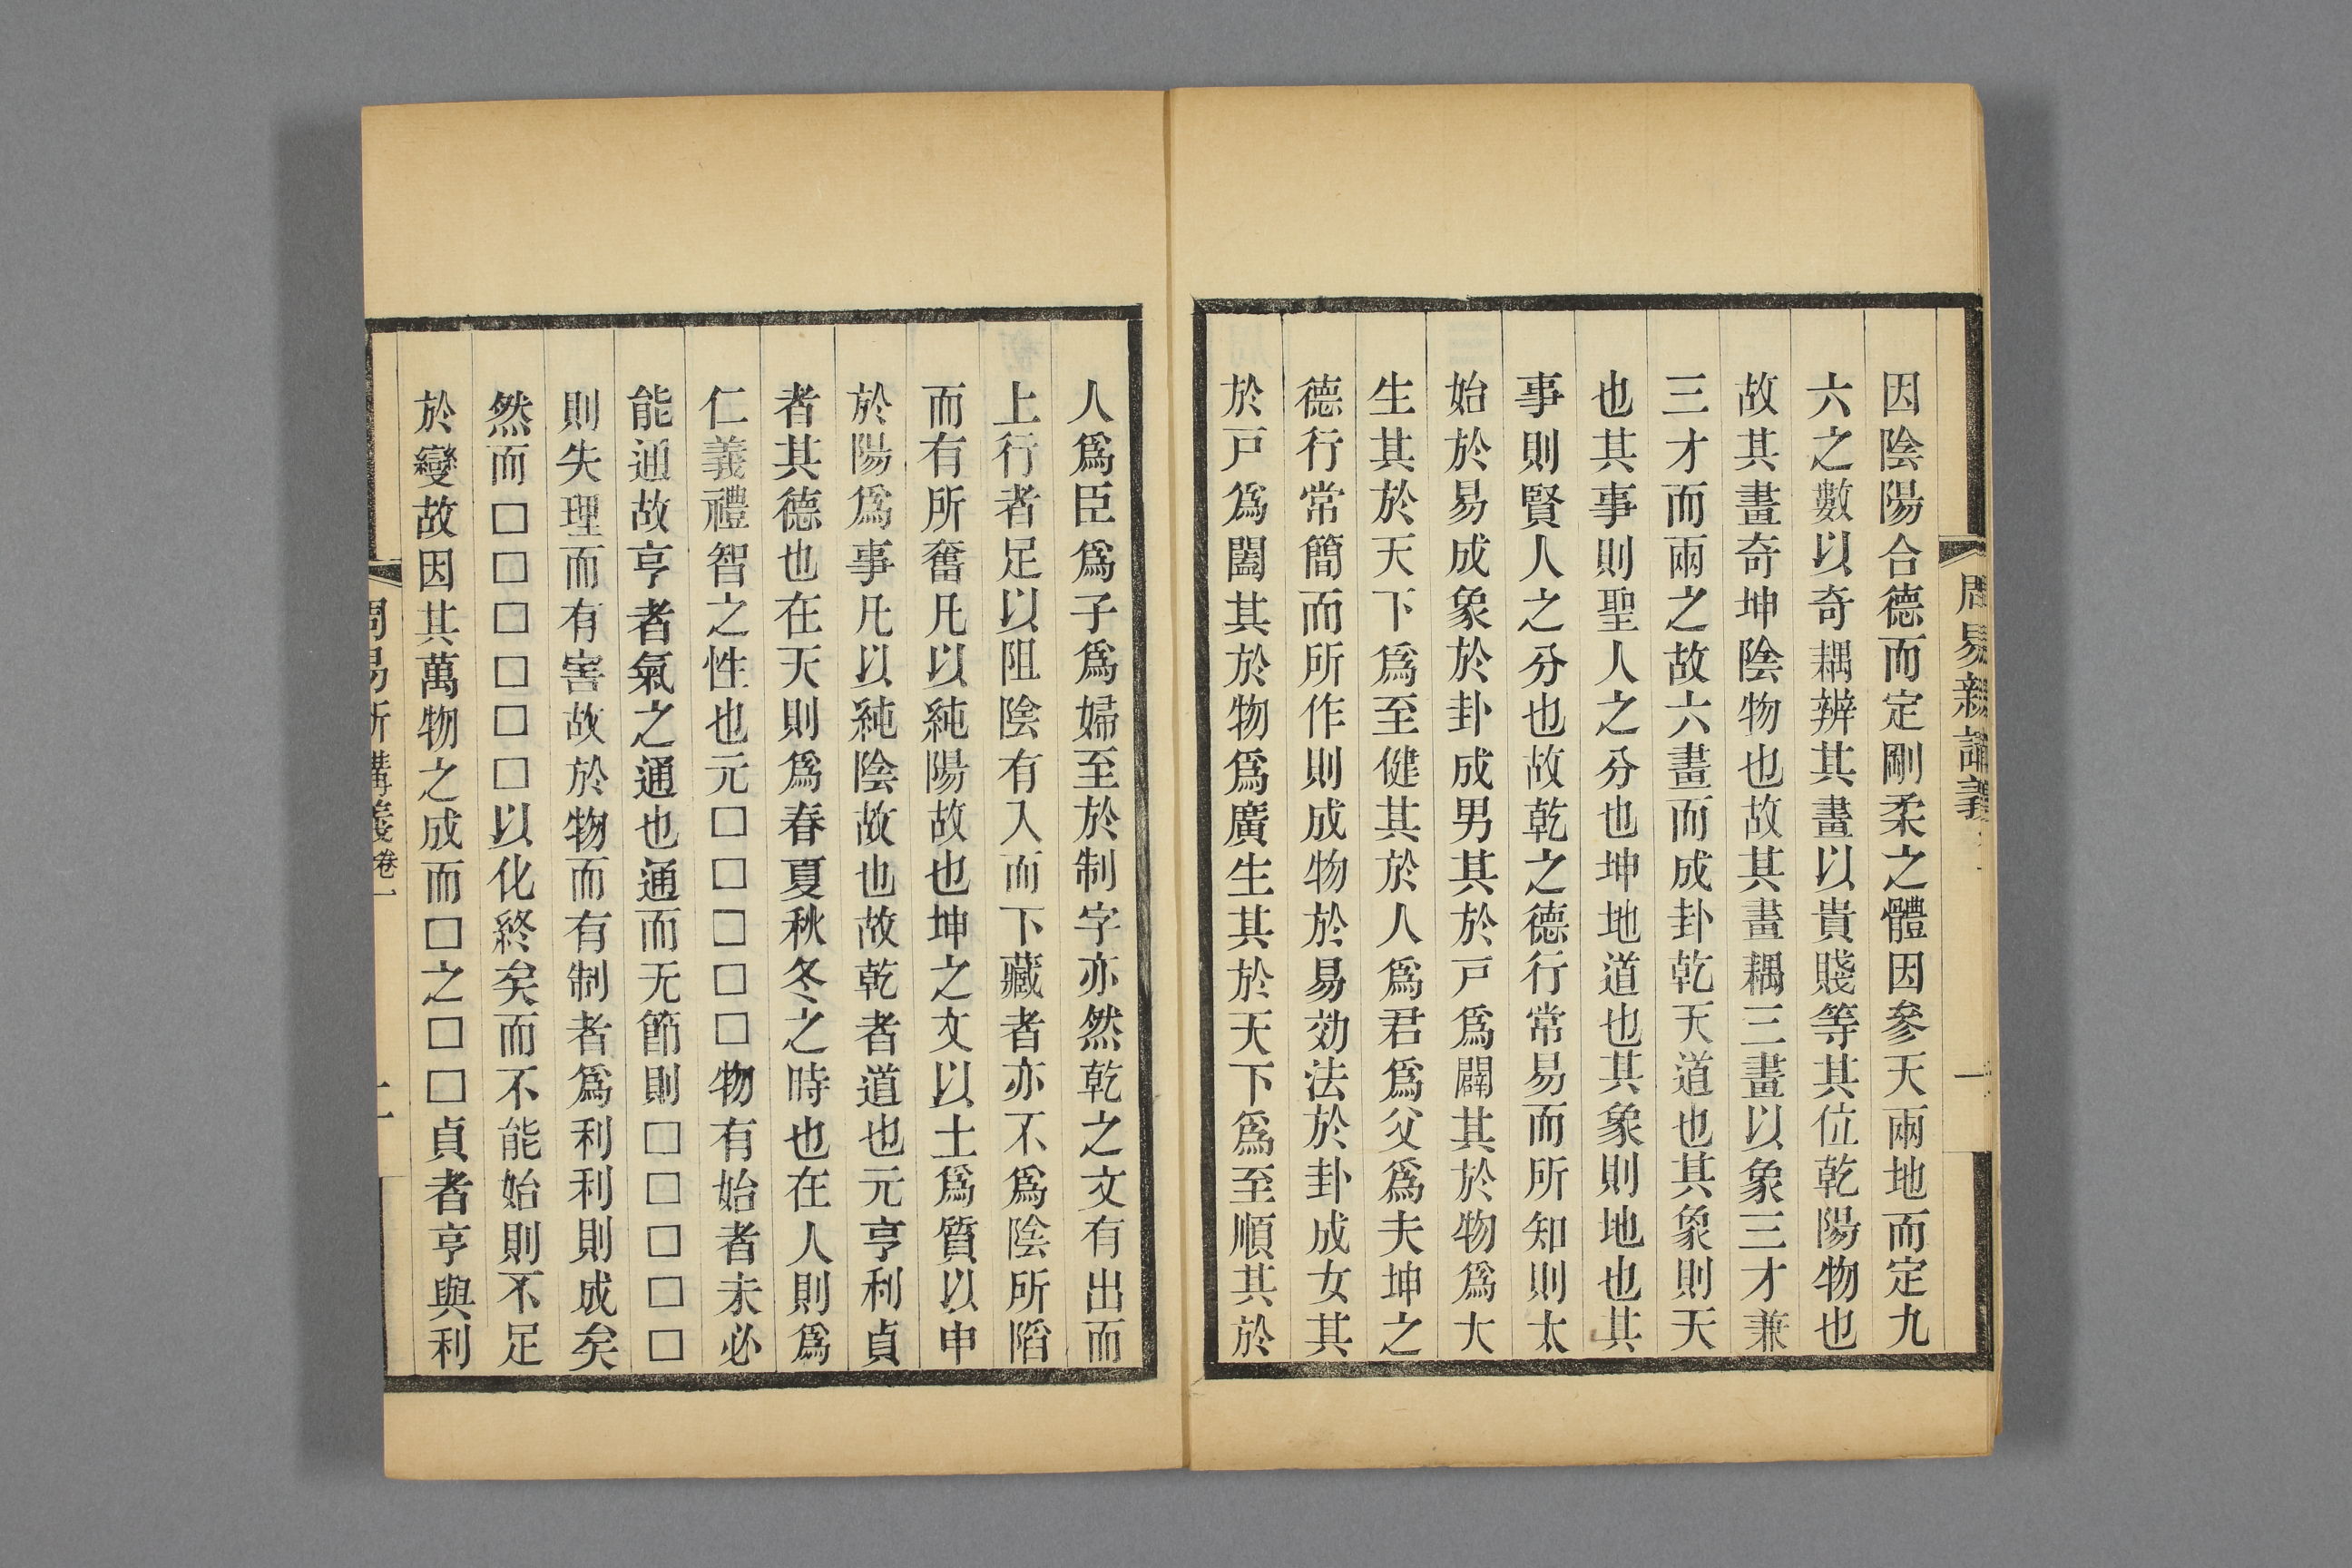 周易新講義 卷一 一
因陰陽合德而定剛柔之體因參天兩地而定九
六之數以奇耦辨其畫以貴賤等其位乾陽物也
故其畫奇坤陰物也故其畫耦三畫以象三才兼
三才而兩之故六畫而成卦乾天道也其象則天
也其事則聖人之分也坤地道也其象則地也其
事則賢人之分也故乾之德行常易而所知則太
始於易成象於卦成男其於戸爲闢其於物爲大
生其於天下爲至健其於人爲君爲父爲夫坤之
德行常簡而所作則成物於易効法於卦成女其
於戸爲闔其於物爲廣生其於天下爲至順其於
人爲臣爲子爲婦至於制字亦然乾之文有出而
上行者足以阻陰有入而下藏者亦不爲陰所䧟
而有所奮凡以純陽故也坤之文以土爲質以申
於陽爲事凡以純陰故也故乾者道也元亨利貞
者其德也在天則爲春夏秋冬之時也在人則爲
仁義禮智之性也元□□□□□物有始者未必
能通故亨者氣之通也通而无節則□□□□□
則失理而有害故於物而有制者爲利利則成矣
然而□□□□□□以化終矣而不能始則不足
於變故因其萬物之成而□之□□貞者亨與利
周易新講義 卷一 二